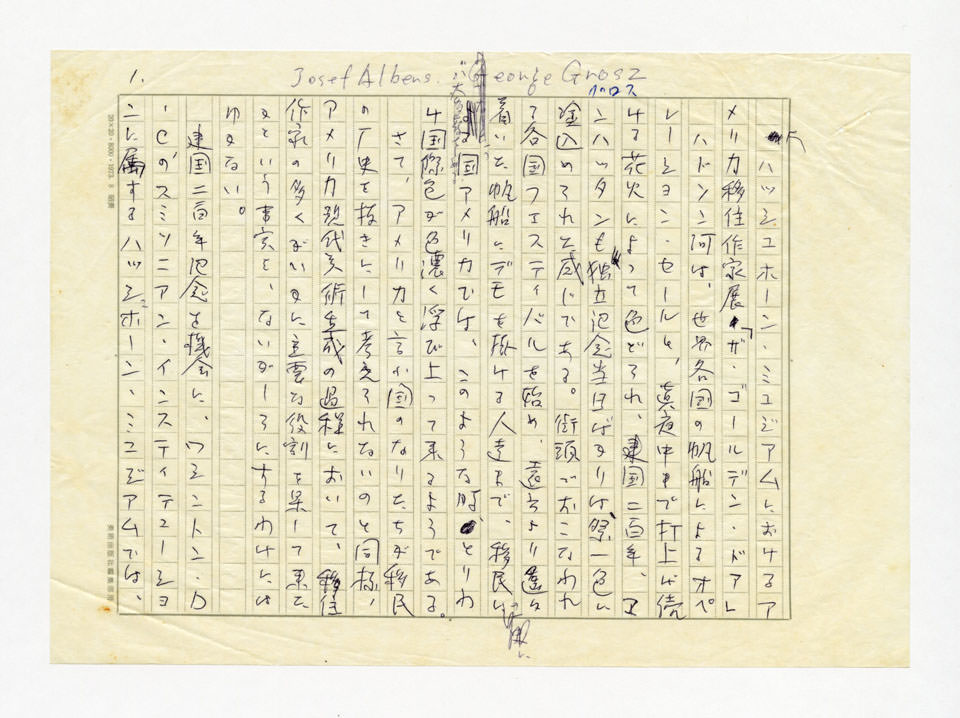 1.
Josef Albens. George Grosz
グロス
ハッシュホーン・ミュジアムにおけるア
メリカ移住作家展「ザ・ゴールデン・ドア」
ハドソン河は、世界各国の帆船によるオペ
レーション・セールと、真夜中まで打上げ続
ける花火によって色どられ、建国二百年、マ
ンハッタンも独立記念当日ばかりは、祭一色に
塗込められた感じである。街頭でおこなわれ
る各国フェスティバルを始め、遠方より
着いた帆船にデモを掛ける人達まで、移民
国アメリカでは、このような時、とりわ
け国際色が色濃く浮び上って来るようである。
さて、アメリカを言か国のなりたちが移民
の歴史を抜きにして考えられないのと同様、
アメリカ現代美術生成の過程において、移住
作家の多くがいかに重要な役割を果して来た
かという事実を、ないがしろにするわけには
ゆかない。
建国二百年記念を機会に、ワシントン・D
・Cのスミソニアン・インスティテューショ
ンに属するハッシュホーン・ミュジアムでは、
20×20